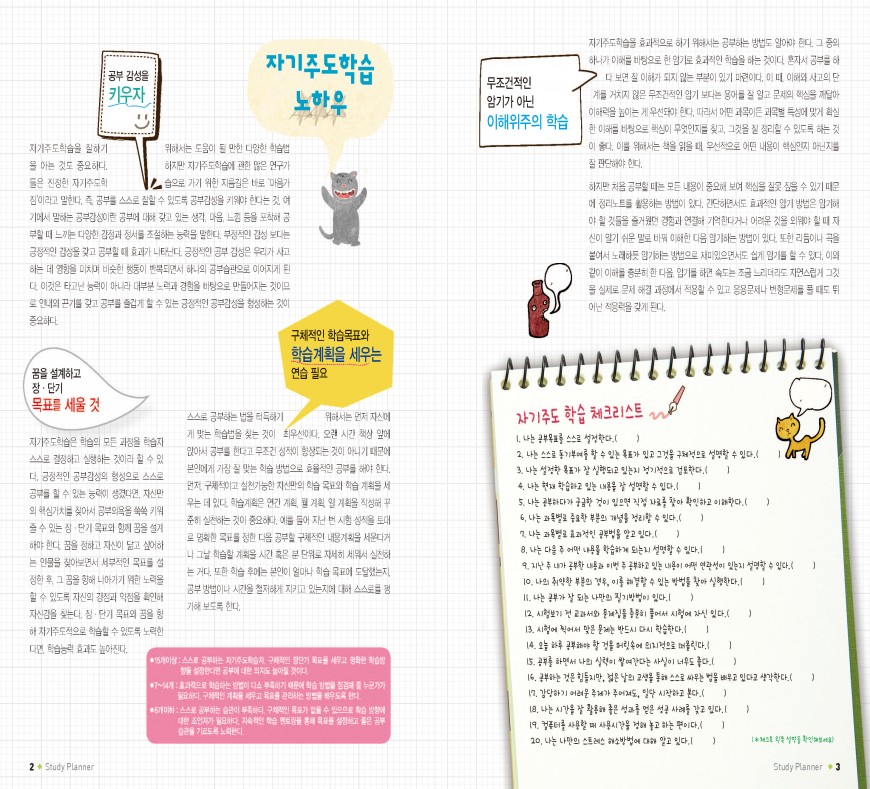 자기주도학습
노하우
공부 감성을
키우자
자기주도학습을 잘하기 위해서는 도움이 될 만한 다양한 학습법
을 아는 것도 중요하다. 하지만 자기주도학습에 관한 많은 연구가
들은 진정한 자기주도학 습으로 가기 위한 지름길은 바로 '마음가
짐'이라고 말한다. 즉, 공부를 스스로 잘할 수 있도록 공부감성을 키워야 한다는 것. 여
기에서 말하는 공부감성이란 공부에 대해 갖고 있는 생각, 마음, 느낌 등을 포착해 공
부할 때 느끼는 다양한 감정과 정서를 조절하는 능력을 말한다. 부정적인 감성 보다는
긍정적인 감성을 갖고 공부할 때 효과가 나타난다. 긍정적인 공부 감성은 우리가 사고
하는 데 영향을 미치며 비슷한 행동이 반복되면서 하나의 공부습관으로 이어지게 된
다. 이것은 타고난 능력이 아니라 대부분 노력과 경험을 바탕으로 만들어지는 것이므
로 인내와 끈기를 갖고 공부를 즐겁게 할 수 있는 긍정적인 공부감성을 형성하는 것이
중요하다.
꿈을 설계하고
장·단기
목표를 세울 것
자기주도학습은 학습의 모든 과정을 학습자
스스로 결정하고 실행하는 것이라 할 수 있
다. 긍정적인 공부감성의 형성으로 스스로
공부를 할 수 있는 능력이 생겼다면, 자신만
의 핵심가치를 찾아서 공부의욕을 쑥쑥 키워
줄 수 있는 장·단기 목표와 함께 꿈을 설계
해야 한다. 꿈을 정하고 자신이 닮고 싶어하
는 인물을 찾아보면서 세부적인 목표를 설
정한 후, 그 꿈을 향해 나아가기 위한 노력을
할 수 있도록 자신의 강점과 약점을 확인해
자신감을 찾는다. 장·단기 목표와 꿈을 향
해 자기주도적으로 학습할 수 있도록 노력한
다면, 학습능력 효과도 높아진다.
구체적인 학습목표와
학습계획을 세우는
연습 필요
스스로 공부하는 법을 터득하기 위해서는 먼저 자신에
게 맞는 학습법을 찾는 것이 최우선이다. 오랜 시간 책상 앞에
앉아서 공부를 한다고 무조건 성적이 향상되는 것이 아니기 때문에
본인에게 가장 잘 맞는 학습 방법으로 효율적인 공부를 해야 한다.
먼저, 구체적이고 실천가능한 자신만의 학습 목표와 학습 계획을 세
우는 데 있다. 학습계획은 연간 계획, 월 계획, 일 계획을 작성해 꾸
준히 실천하는 것이 중요하다. 예를 들어 지난 번 시험 성적을 토대
로 명확한 목표를 정한 다음 공부할 구체적인 내용계획을 세운다거
나 그날 학습할 계획을 시간 혹은 분 단위로 자세히 세워서 실천하
는 거다. 또한 학습 후에는 본인이 얼마나 학습 목표에 도달했는지,
공부 방법이나 시간을 철저하게 지키고 있는지에 대해 스스로를 평
가해 보도록 한다.
●15개이상 : 스스로 공부하는 자기주도학습자. 구체적인 장단기 목표를 세우고 명확한 학습방
향을 설정한다면 공부에 대한 의지도 높아질 것이다.
●7~14개 : 효과적으로 학습하는 방법이 다소 부족하기 때문에 학습 방법을 점검해 줄 누군가가
필요하다. 구체적인 계획을 세우고 목표를 관리하는 방법을 배우도록 한다.
●6개이하 : 스스로 공부하는 습관이 부족하다. 구체적인 목표가 없을 수 있으므로 학습 방향에
대한 조언자가 필요하다. 지속적인 학습 멘토링을 통해 목표를 설정하고 좋은 공부
습관을 기르도록 노력한다.
2 ● Study Planner
무조건적인
암기가 아닌
이해위주의 학습
자기주도학습을 효과적으로 하기 위해서는 공부하는 방법도 알아야 한다. 그 중의
하나가 이해를 바탕으로 한 암기로 효과적인 학습을 하는 것이다. 혼자서 공부를 하
다 보면 잘 이해가 되지 않는 부분이 있기 마련이다. 이 때, 이해와 사고의 단
계를 거치지 않은 무조건적인 암기 보다는 용어를 잘 알고 문제의 핵심을 깨달아
이해력을 높이는 게 우선돼야 한다. 따라서 어떤 과목이든 과목별 특성에 맞게 확실
한 이해를 바탕으로 핵심이 무엇인지를 찾고, 그것을 잘 정리할 수 있도록 하는 것
이 좋다. 이를 위해서는 책을 읽을 때, 우선적으로 어떤 내용이 핵심인지 아닌지를
잘 판단해야 한다.
하지만 처음 공부할 때는 모든 내용이 중요해 보여 핵심을 잘못 짚을 수 있기 때문
에 정리노트를 활용하는 방법이 있다. 간단하면서도 효과적인 암기 방법은 암기해
야 할 것들을 즐거웠던 경험과 연결해 기억한다거나 어려운 것을 외워야 할 때 자
신이 알기 쉬운 말로 바꿔 이해한 다음 암기하는 방법이 있다. 또한 리듬이나 곡을
붙여서 노래하듯 암기하는 방법으로 재미있으면서도 쉽게 암기를 할 수 있다. 이와
같이 이해를 충분히 한 다음, 암기를 하면 속도는 조금 느리더라도 자연스럽게 그것
을 실제로 문제 해결 과정에서 적용할 수 있고 응용문제나 변형문제를 풀 때도 뛰
어난 적응력을 갖게 된다.
자기주도 학습 체크리스트
1. 나는 공부목표를 스스로 설정한다.( )
2. 나는 스스로 동기부여를 할 수 있는 목표가 있고 그것을 구체적으로 설명할 수 있다.( )
3. 나는 설정한 목표가 잘 실행되고 있는지 정기적으로 검토한다.( )
4. 나는 현재 학습하고 있는 내용을 잘 설명할 수 있다.( )
5. 나는 공부하다가 궁금한 것이 있으면 직접 자료를 찾아 확인하고 이해한다.( )
6. 나는 과목별로 중요한 부분의 개념을 정리할 수 있다.( )
7. 나는 과목별로 효과적인 공부법을 알고 있다.( )
8. 나는 다음 주 어떤 내용을 학습하게 되는지 설명할 수 있다.( )
9. 지난 주 내가 공부한 내용과 이번 주 공부하고 있는 내용이 어떤 연관성이 있는지 설명할 수 있다.( )
10. 나의 취약한 부분의 경우, 이를 해결할 수 있는 방법을 찾아 실행한다.( )
11. 나는 공부가 잘 되는 나만의 필기방법이 있다.( )
12. 시험보기 전 교과서와 문제집을 충분히 풀어서 시험에 자신 있다.( )
13. 시험에 찍어서 맞은 문제는 반드시 다시 학습한다.( )
14. 오늘 하루 공부해야 할 것을 머릿속에 의지적으로 떠올린다.( )
15. 공부를 하면서 나의 실력이 쌓여간다는 사실이 너무도 좋다.( )
16. 공부하는 것은 힘들지만, 젊은 날의 고생을 통해 스스로 싸우는 법을 배우고 있다고 생각한다.( )
17. 감당하기 어려운 주제가 주어져도, 일단 시작하고 본다.( )
18. 나는 시간을 잘 활용해 좋은 성과를 얻은 성공 사례를 갖고 있다.( )
19. 컴퓨터를 사용할 때 사용시간을 정해 놓고 하는 편이다.( )
20. 나는 나만의 스트레스 해소방법에 대해 알고 있다.( )
(※체크로 왼쪽 설명을 확인해보세요)
Study Planner ● 3